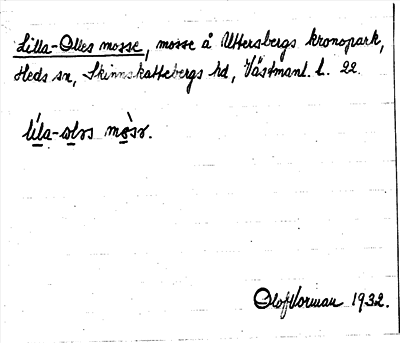 Lilla-Olles mosse, mosse å Uttersbergs kronopark,
Heds sn, Skinnskattebergs hd, Västmanl. l. 22.
líla-ɷlɷs mòsɷ.
Olof Vorman 1932.